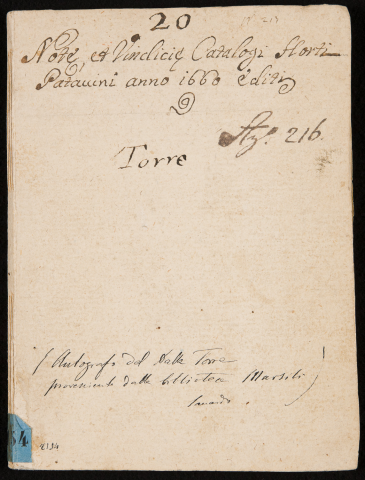 20
Notę, et Vindicię Catalogi Horti
Patavini anno 1660 editi
216.
Torre
(Autografo del Dalle Torre
proveniente dalla biblioteca Marsili)
54